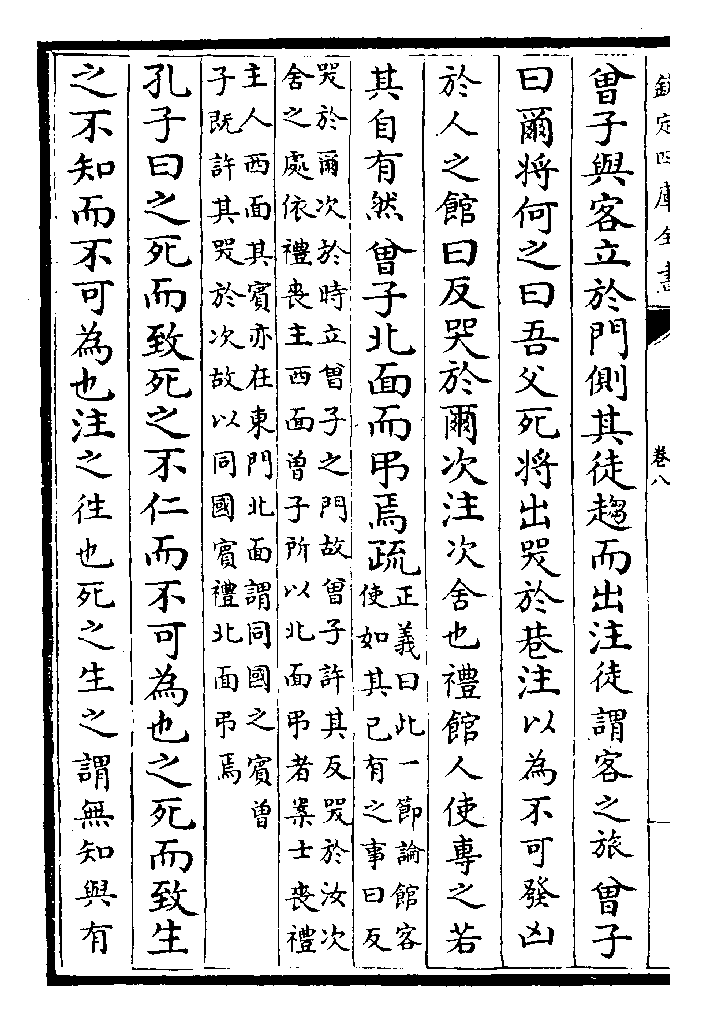 欽定四庫全書
卷八
曾子與客立於門側其徒趨而出注徒謂客之旅曾子
曰爾將何之曰吾父死將出哭於巷注以為不可發凶
於人之館曰反哭於爾次注次舍也禮館人使專之若
其自有然曾子北面而弔焉疏
正義曰此一節論館客
使如其已有之事曰反
哭於爾次於時立曾子之門故曾子許其反哭於汝次
舍之處依禮喪主西面曾子所以北面弔者案士喪禮
主人西面其賓亦在東門北面謂同國之賓曾
子既許其哭於次故以同國賓禮北面弔焉
孔子曰之死而致死之不仁而不可為也之死而致生
之不知而不可為也注之往也死之生之謂無知與有